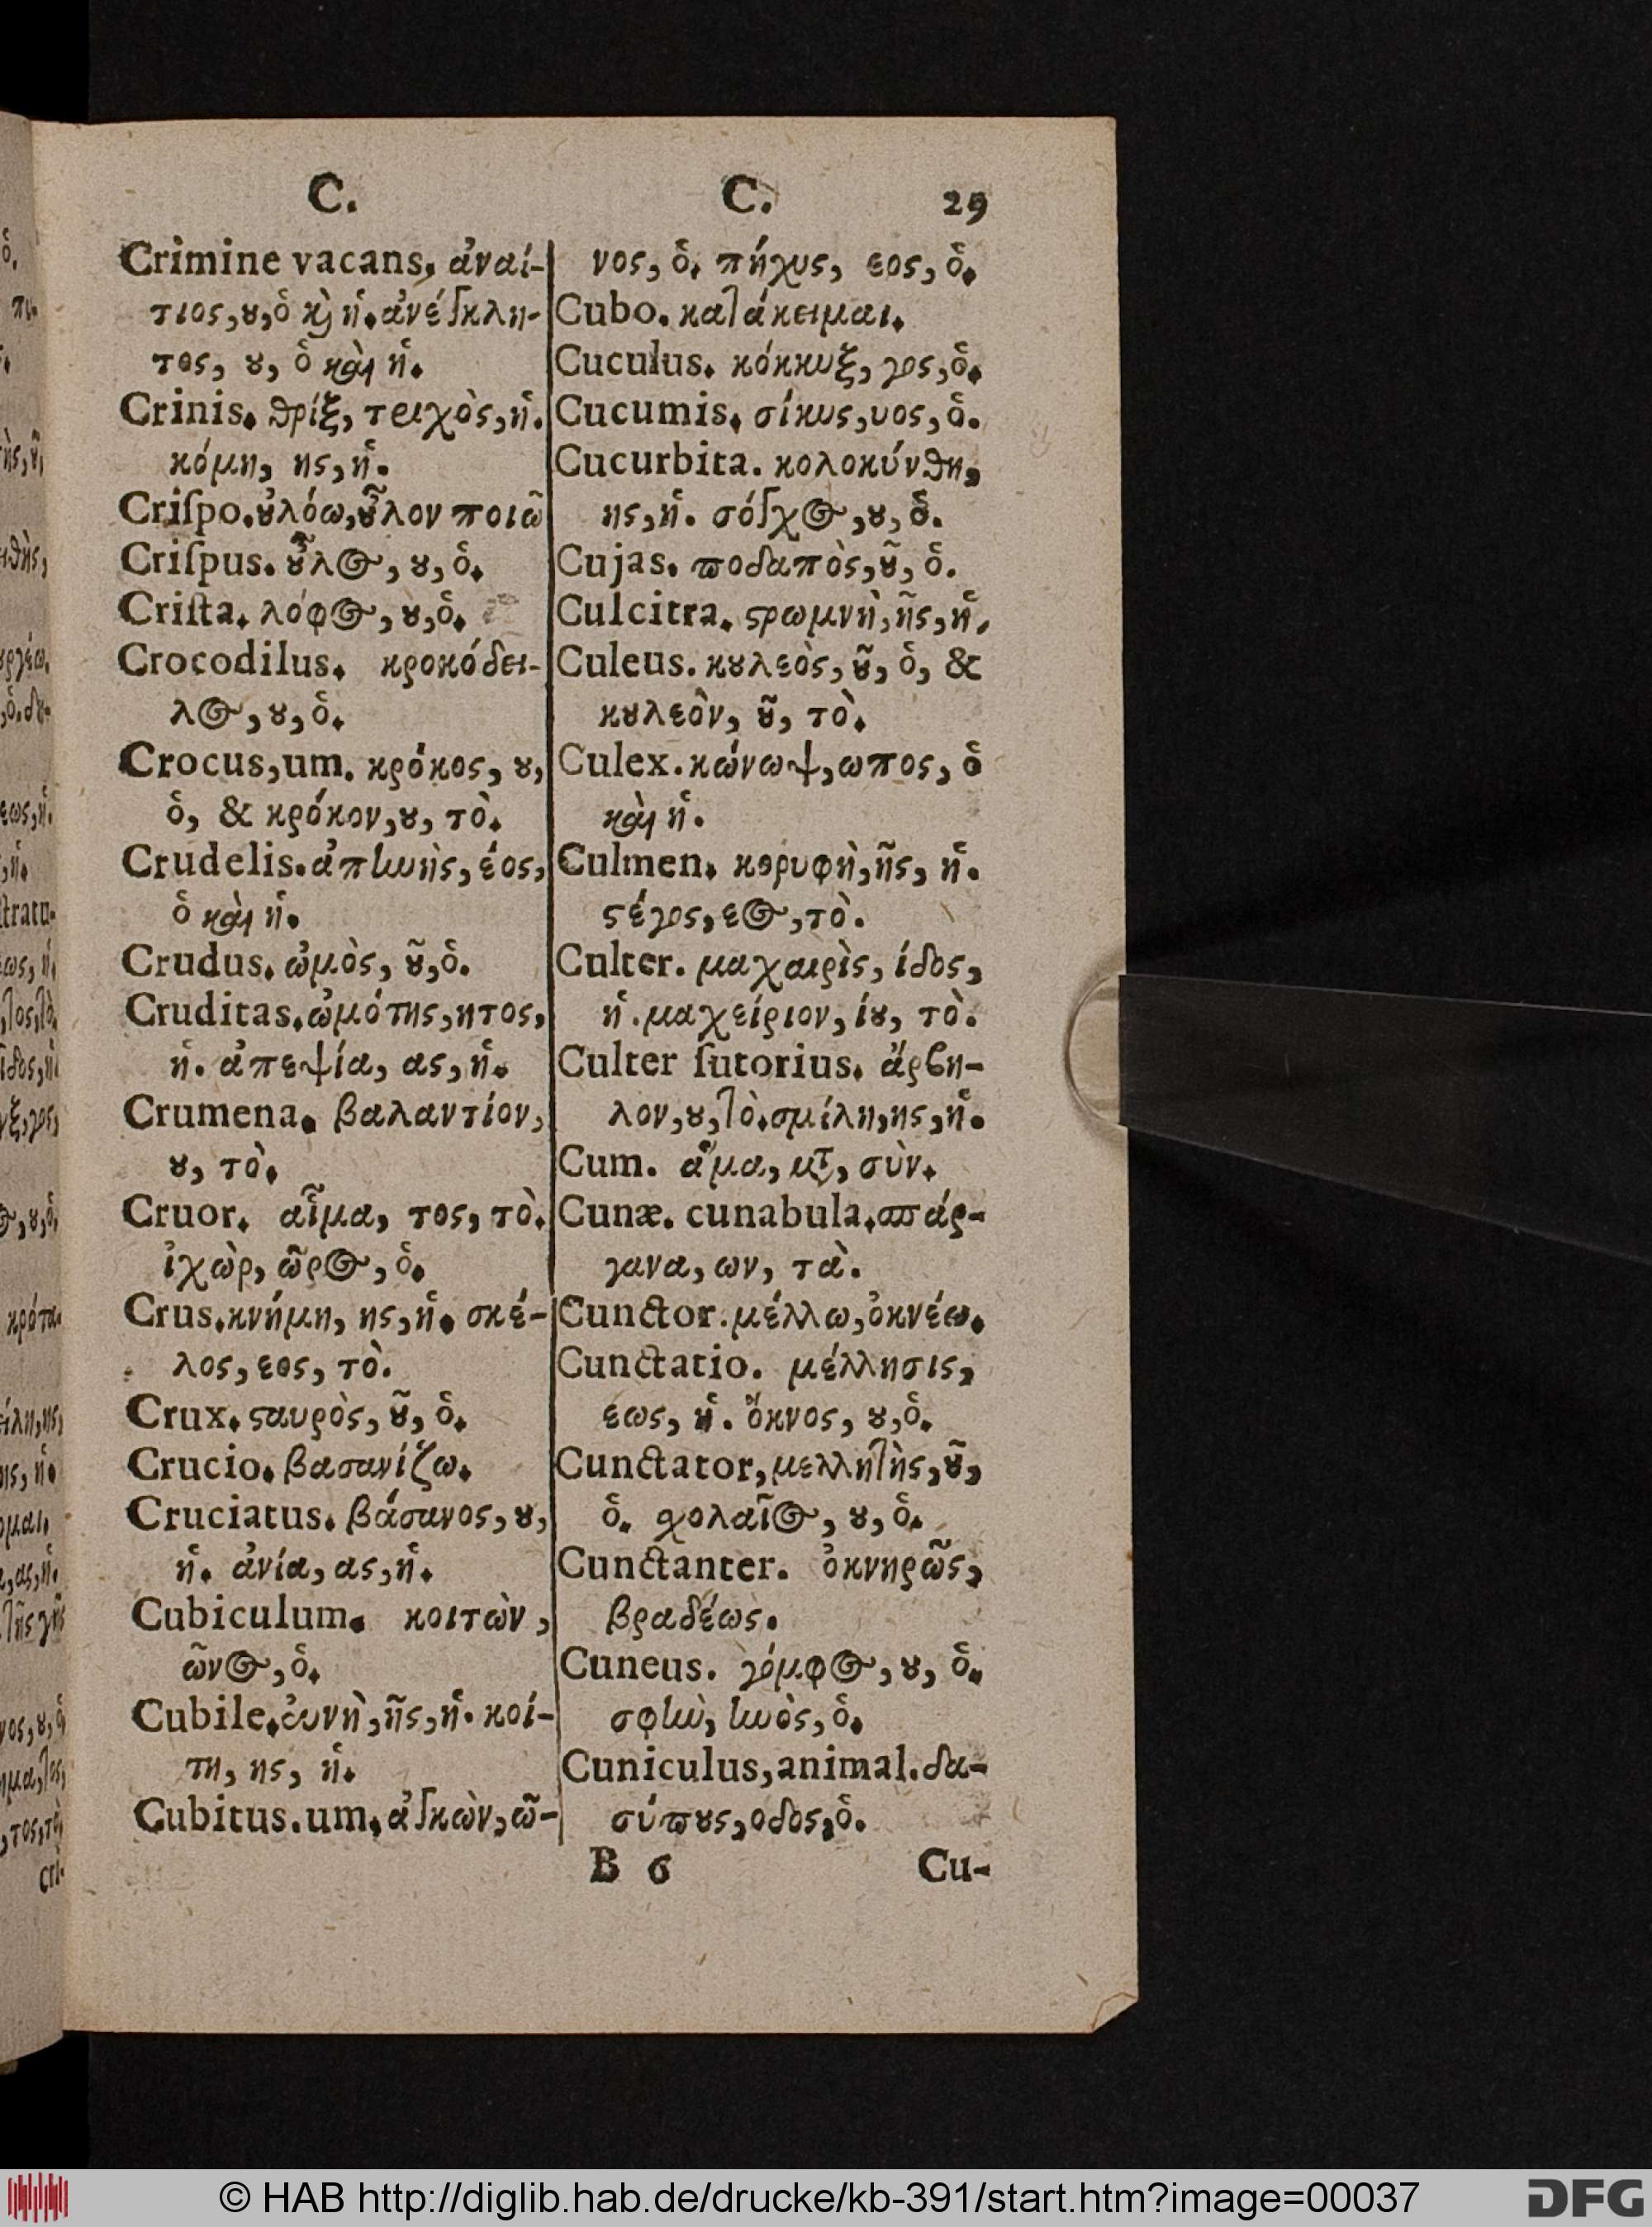 C.
Crimine vacans, ἀναί-
τιος,ȣ,ὁ κ̀ ἡ. ἀνέγκλη-
τος, ȣ, ὁ καὶ ἡ.
Crinis. θρίξ, τριχὸς,ἡ.
κόμη, ης,ἡ.
Criſpo.ȣ̓λόω,ȣ̓͂λον ποιῶ
Criſpus. ȣ̓͂λος, ȣ, ὁ.
Criſta. λόφος, ȣ,ὁ.
Crocodilus. κροκόδει-
λος, ȣ, ὁ.
Crocus,um. κρόκος, ȣ,
ὁ, & κρόκον,ȣ, τὸ.
Crudelis.ἀπηνὴς, έος,
ὁ καὶ ἡ.
Crudus. ὠμὸς, ȣ͂,ὁ.
Cruditas.ὠμότης,ητος,
ἡ. ἀπεψία, ας, ἡ.
Crumena. βαλαντίον,
ȣ, τὸ.
Cruor. αἷμα, τος, τὸ.
ἰχὼρ, ῶρος, ὁ.
Crus.κνήμη, ης,ἡ. σκέ-
λος, εος, τὸ.
Crux. ϛαυρὸς, ȣ͂, ὁ.
Crucio. βασανίζω.
Cruciatus. βάσανος, ȣ,
ἡ. ἀνία, ας, ἡ.
Cubiculum. κοιτὼν,
ῶνος, ὁ.
Cubile.ἐυνὴ,ῆς,ἡ. κοί-
τη, ης, ἡ.
Cubitus.um.ἀγκὼν,ῶ-
C. 29
νος, ὁ. πήχυς, εος, ὁ.
Cubo. κατάκειμαι.
Cuculus. κόκκυξ, γος,ὁ.
Cucumis. σίκυς,υος, ὁ.
Cucurbita. κολοκύνθη,
ης,ἡ. σόγχος,ȣ, ὁ.
Cujas. ποδαπὸς,ȣ͂, ὁ.
Culcitra. ϛρωμνὴ,ῆς, ἡ.
Culeus. κȣλεὸς, ȣ͂, ὁ, &
κȣλεὸν, ȣ͂, τὸ.
Culex.κώνωψ,ωπος, ὁ
καὶ ἡ.
Culmen. κορυφὴ,ῆς, ἡ.
ϛέγος, εος,τὸ.
Culter. μαχαιρὶς, ίδος,
ἡ.μαχαίριον, ίȣ, τὸ.
Culter ſutorius. ἄρβη-
λον,ȣ,τὸ.σμίλη,ης,ἡ.
Cum. ἅμα, μτ̀, σὺν.
Cunæ. cunabula.σπάρ-
γανα, ων, τὰ.
Cunctor.μέλλω,ὀκνέω.
Cunctatio. μέλλησις,
εως, ἡ. ὄκνος, ȣ,ὁ.
Cunctator,μελλητὴς,ȣ͂,
ὁ. σχολαῖος, ȣ, ὁ.
Cunctanter. ὀκνηρῶς,
βραδέως.
Cuneus. γόμφος, ȣ, ὁ.
σφὴν, ηνὸς, ὁ.
Cuniculus,animal.δα-
σύπȣς,οδος,ὁ.
B 6 Cu-
© HAB http://diglib.hab.de/drucke/kb-391/start.htm?image=00037
DFG